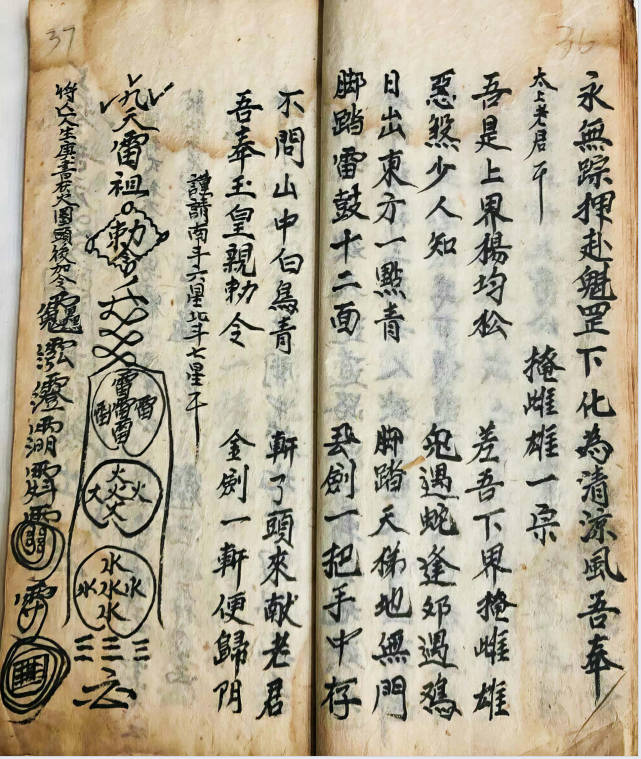 36
永無踪押赴魁罡下化為清涼風吾奉
太上老君
掩雌雄一宗
吾是上界楊均松 差吾下界掩雌雄
惡煞少人知 犯遇蛇逢邪遇鴉
日出東方一點青 脚踏天梯地無門
脚踏雷鼓十二面 劍一把手中存
不問山中白鳥青 斬了頭來献老君
吾奉玉皇親勅令 金劍一斬便歸阴
謹請南斗六星北斗七星
37
九天雷祖勅令
雷雷雷雷雷
火火火火火
水水水水水
將亡人生庚書在火圈頭後加令